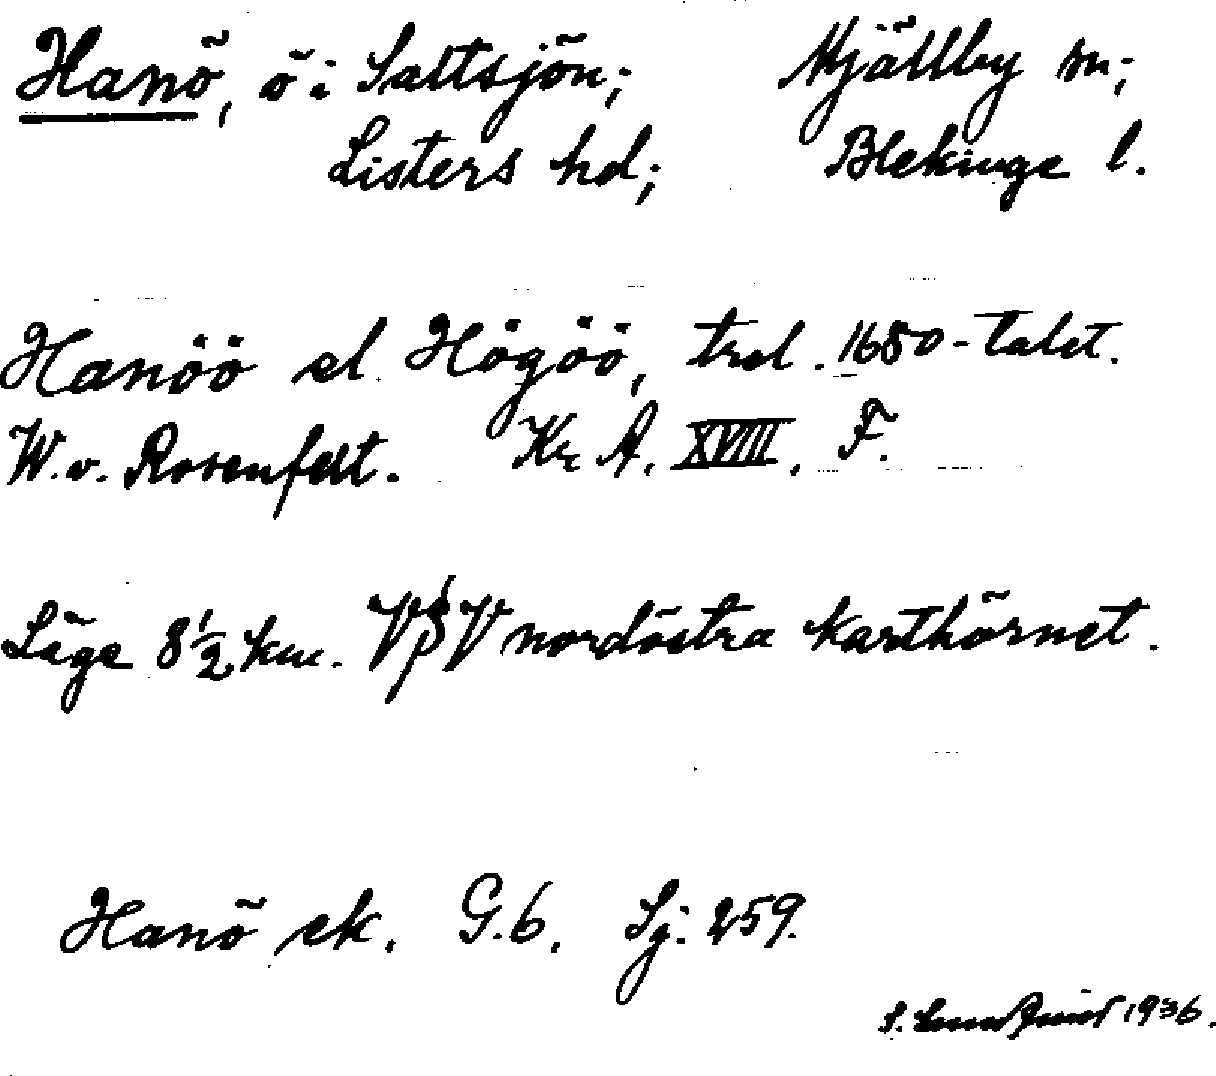 Hanö, ö i Saltsjön; Mjällby sn;
Listers hd; Blekinge l.
Hanöö el Högöö, trol. 1680-talet.
W. v. Rosenfelt. Kr A. XVIII. F.
Läge 8 1/2 km. VSV nordöstra karthörnet.
Hanö ek. G.b. Sj. 259.
S. 1936.